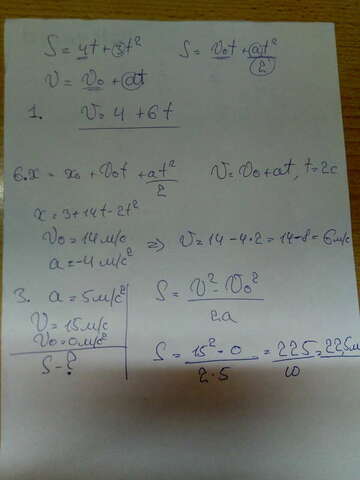 S = 4t + 3t² S = v₀t + at²/2
v = v₀ + at
1. v = 4 + 6t
6. x = x₀ + v₀t + at²/2 v = v₀ + at, t = 2c
x = 3 + 14t - 2t²
v₀ = 14 м/с
a = -4 м/с² ⇒ v = 14 - 4·2 = 14 - 8 = 6 м/с
3. a = 5 м/с² S = v² - v₀² / 2a
v = 15 м/с
v₀ = 0 м/с²
S - ? S = 15² - 0 / 2·5 = 225/10 = 22,5 м